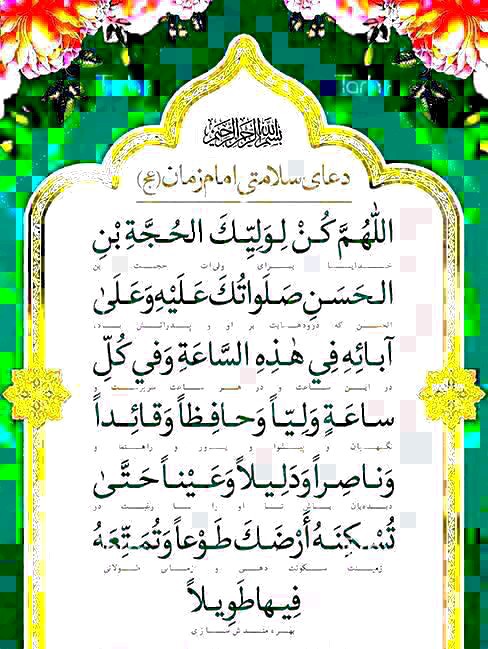 بسم الله الرحمن الرحیم
دعای سلامتی امام زمان (عج)
اللّٰهُمَّ كُنْ لِوَلِيِّكَ الحُجَّةِ بْنِ
خدایا برای ولی‌ات حجت بن
الحَسَنِ صَلَواتُكَ عَلَيْهِ وَعَلىٰ
الحسن که درودهایت بر او و پدرانش باد،
آبائِهِ فِي هٰذِهِ السَّاعَةِ وَفي كُلِّ
در این ساعت و در هر ساعت سرپرست و
ساعَةٍ وَلِيّاً وَحافِظاً وَقائِداً
نگهبان و پیشوا و یاور و راهنما و
وَناصِراً وَدَلِيلاً وَعَيْناً حَتَّىٰ
دیده‌بان باش تا او را رغبت در
تُسْكِنَهُ أَرْضَكَ طَوْعاً وَتُمَتِّعَهُ
زمینت سکونت دهی و زمانی طولانی
فِيها طَوِيلاً
بهره‌مندش سازی